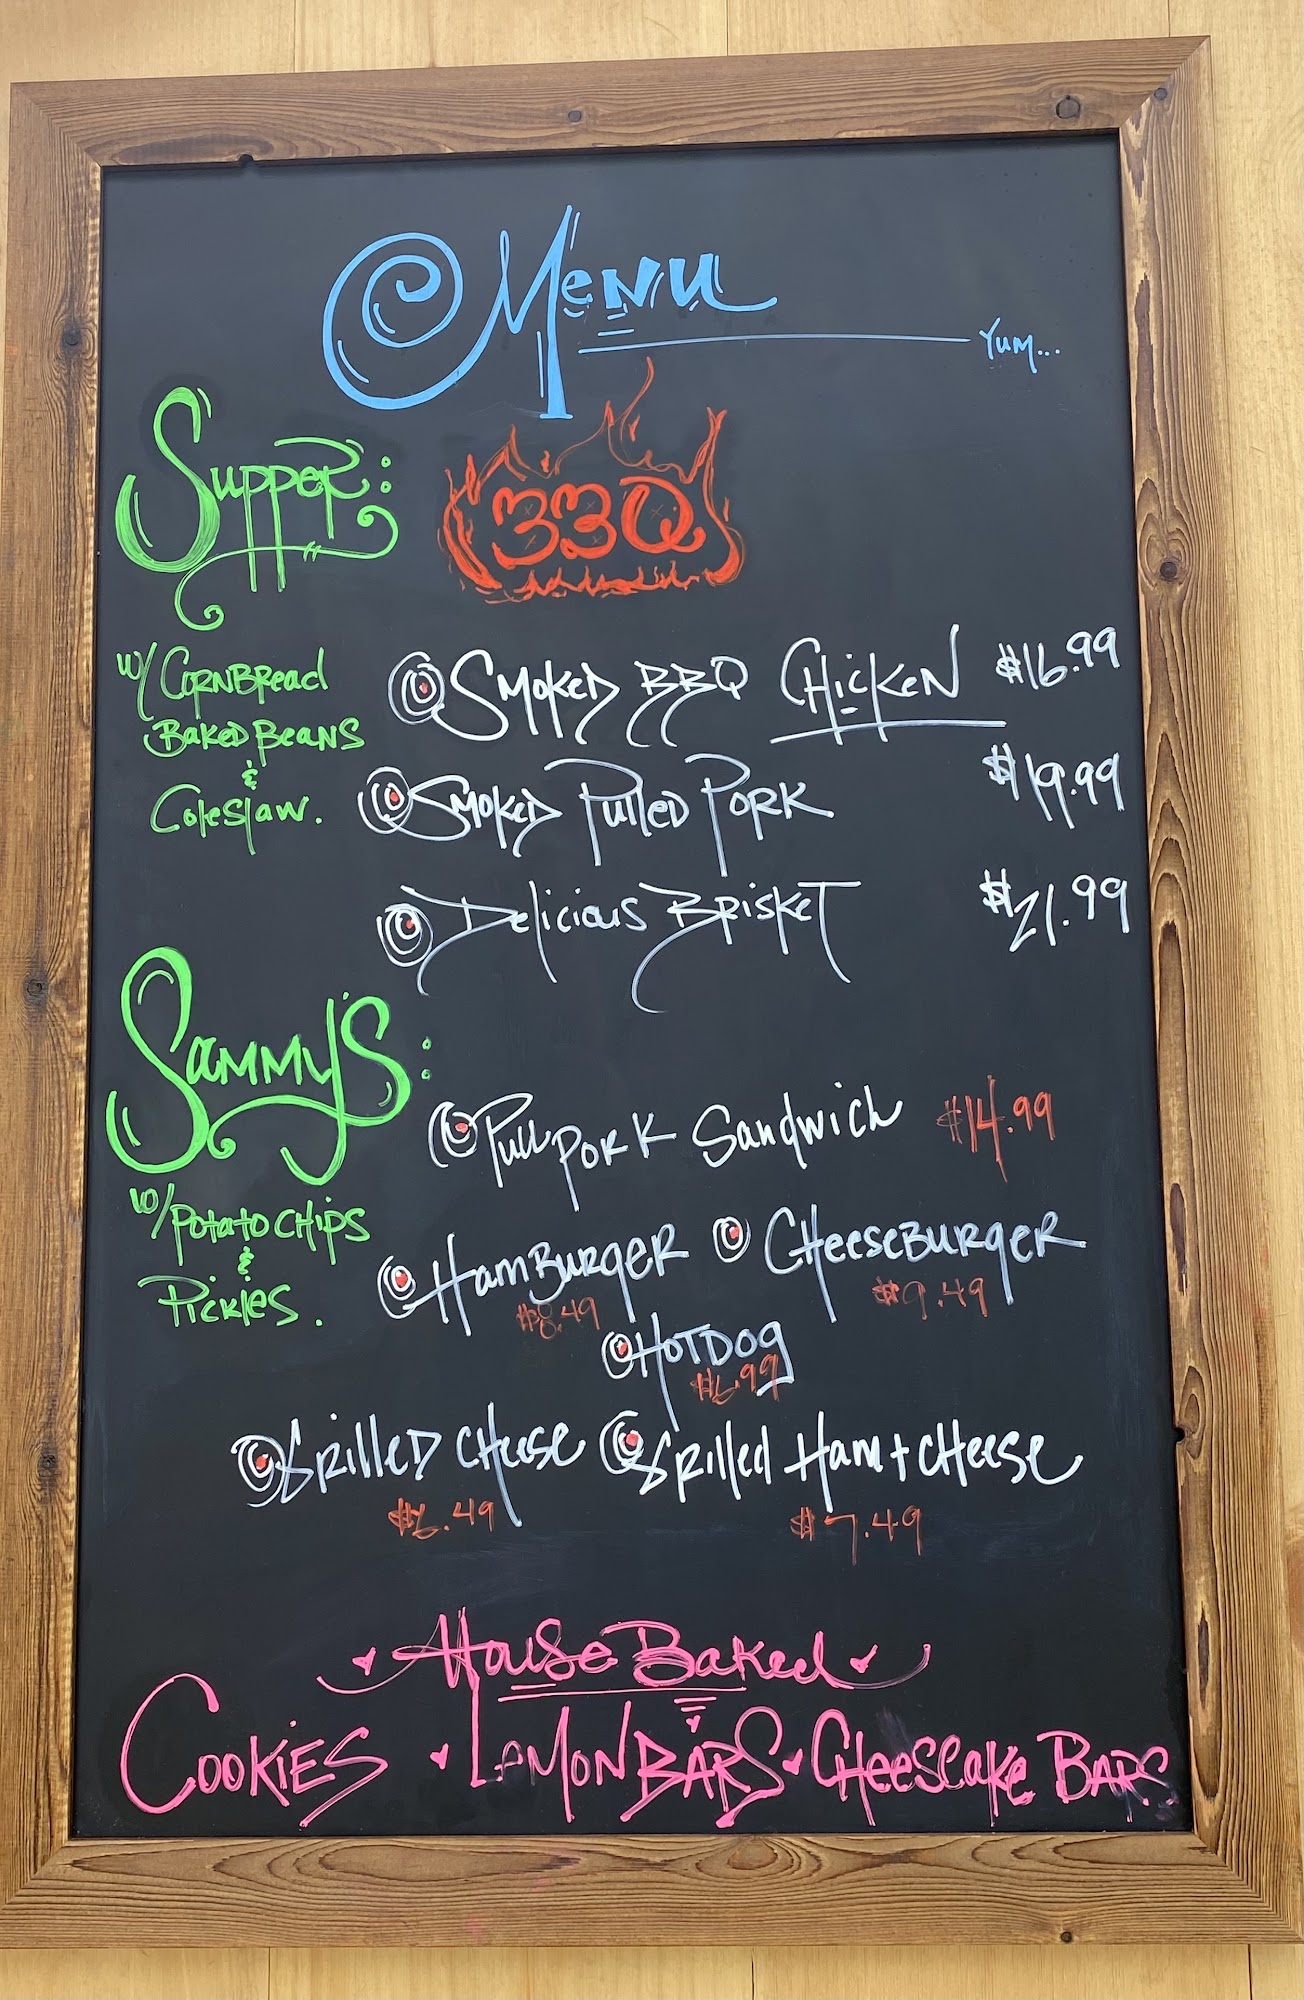 Menu
Yum...
Supper:
BBQ
w/ Cornbread
Baked Beans
&
Coleslaw.
Smoked BBQ Chicken $16.99
Smoked Pulled Pork $19.99
Delicious Brisket $21.99
Sammy's:
w/ Potato Chips
&
Pickles.
Pull Pork Sandwich $14.99
Hamburger Cheeseburger
$8.49 $9.49
Hotdog
$6.99
Grilled Cheese Grilled Ham + Cheese
$6.49 $7.49
House Baked
Cookies Lemon Bars Cheesecake Bars